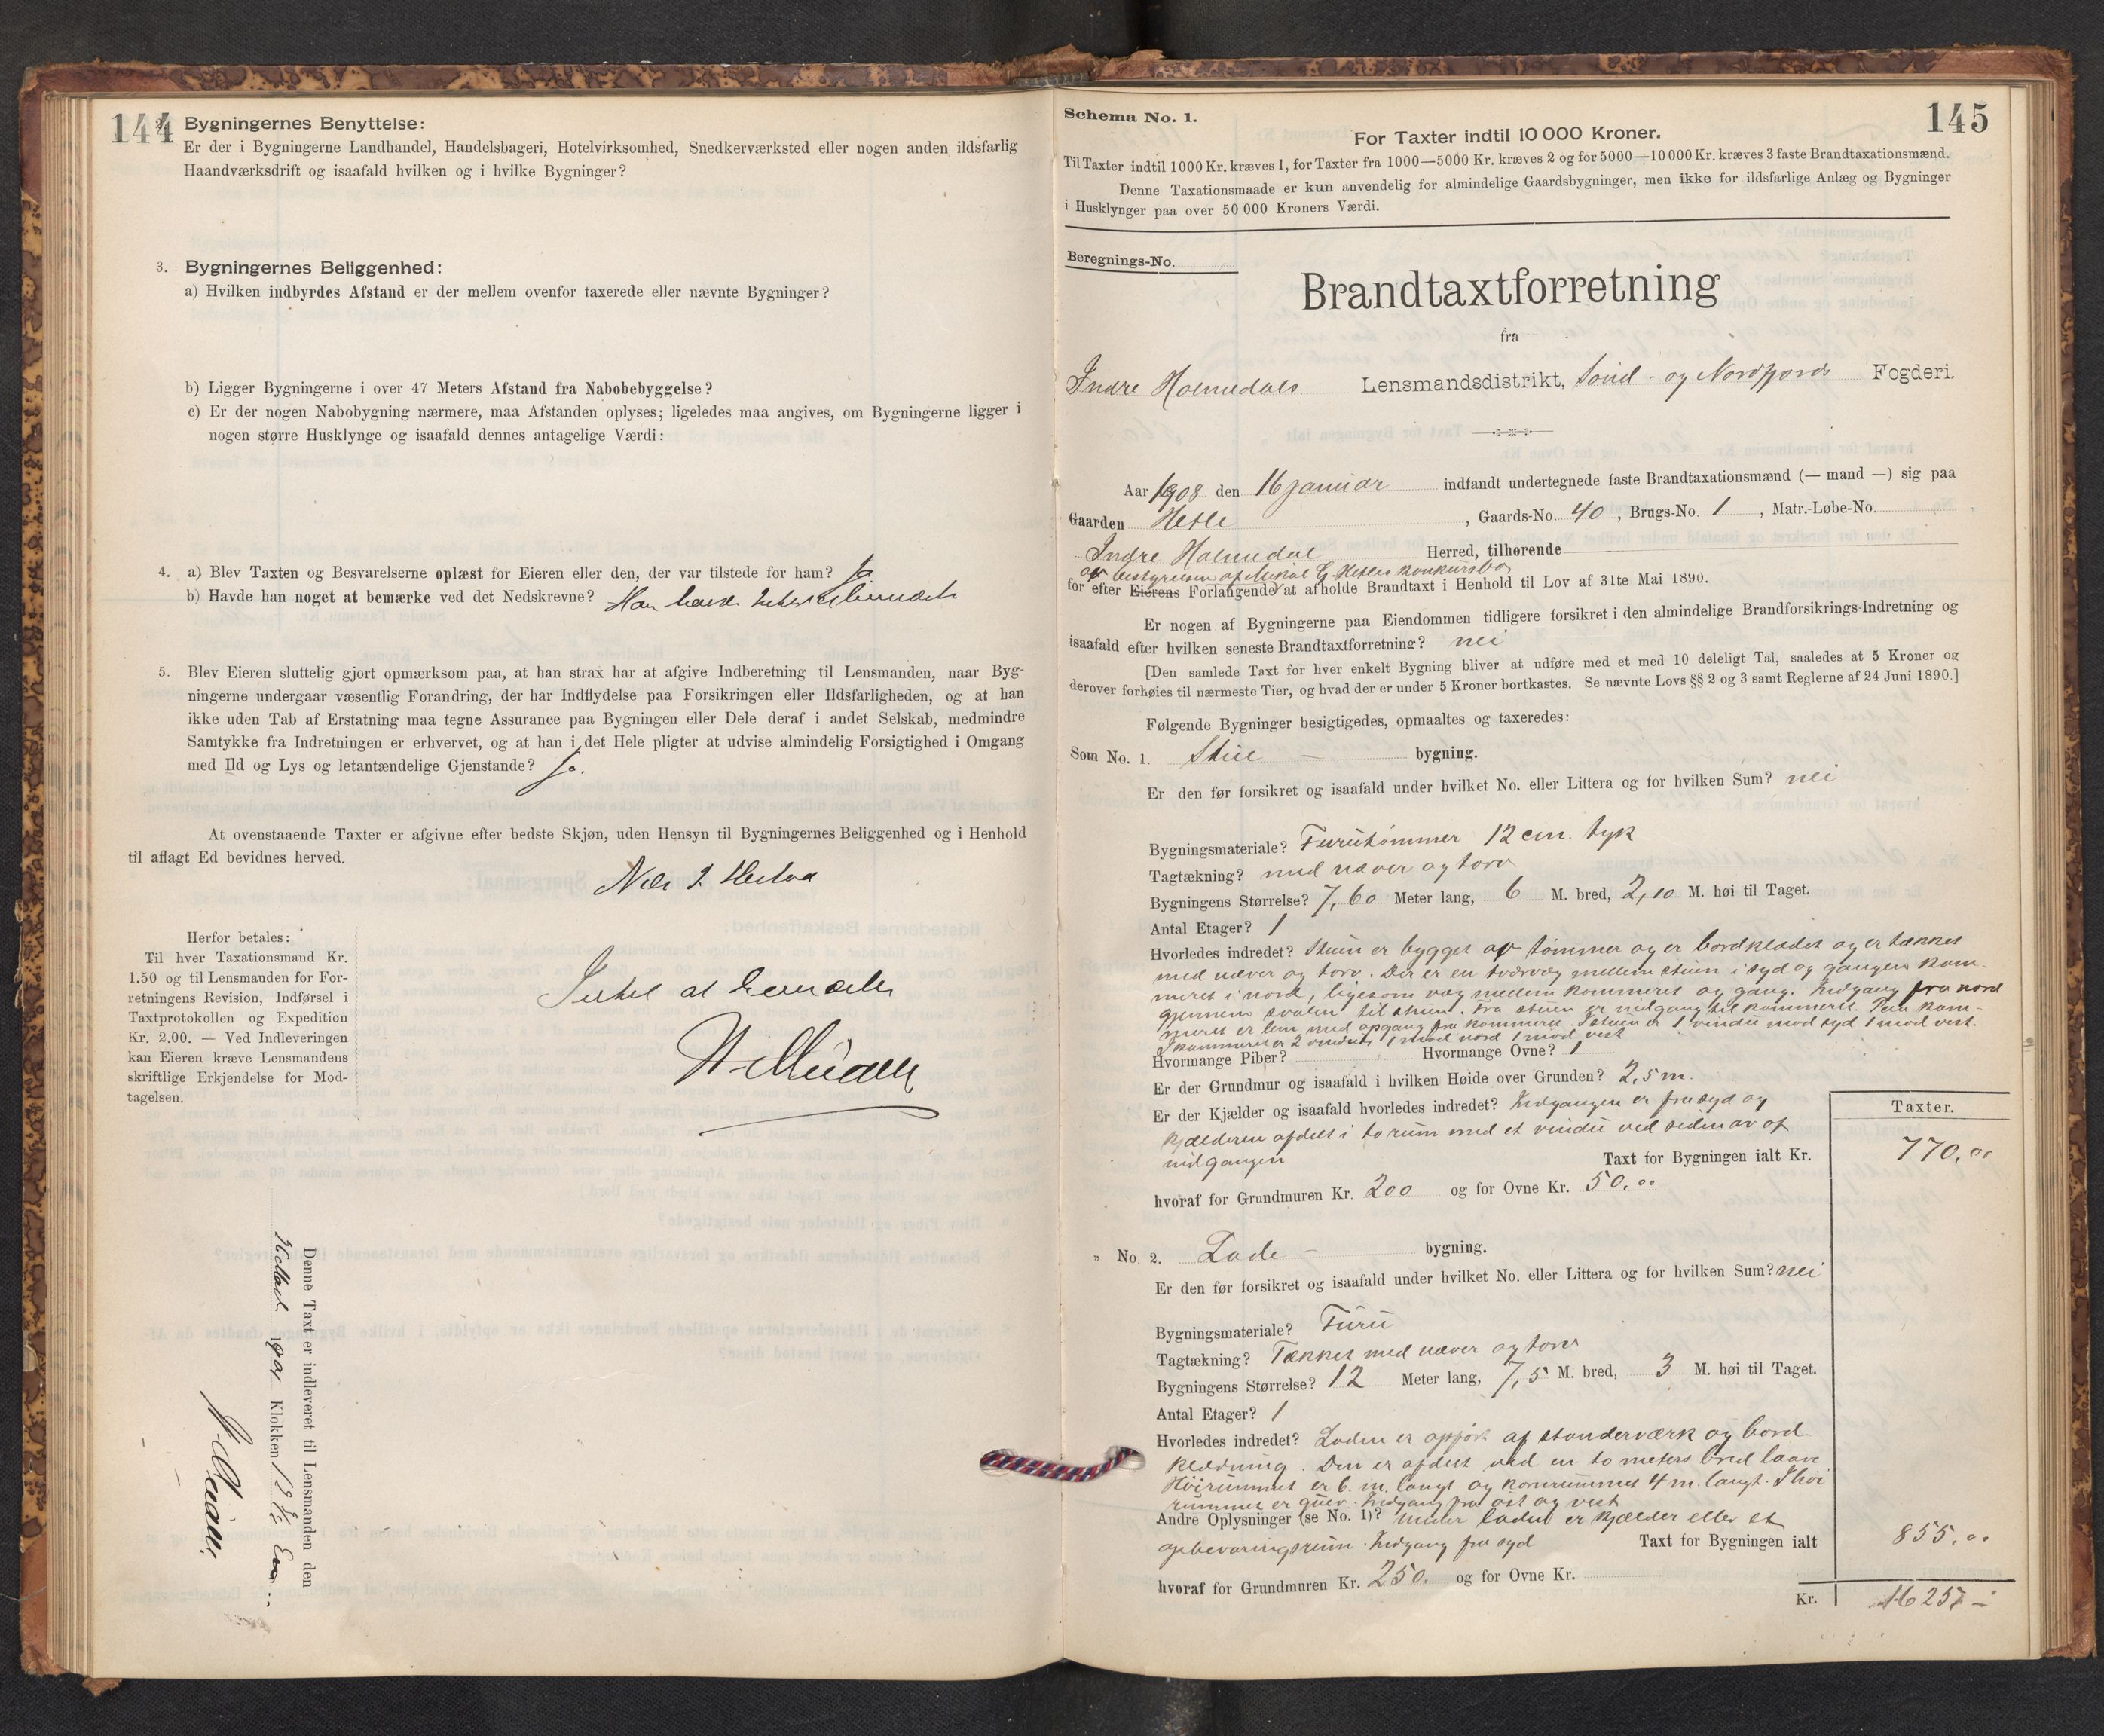 144
2. Bygningernes Benyttelse:
Er der i Bygningerne Landhandel, Handelsbageri, Hotelvirksomhed, Snedkerværksted eller nogen anden ildsfarlig
Haandværksdrift og isaafald hvilken og i hvilke Bygninger?
3. Bygningernes Beliggenhed:
a) Hvilken indbyrdes Afstand er der mellem ovenfor taxerede eller nævnte Bygninger?
b) Ligger Bygningerne i over 47 Meters Afstand fra Nabobebyggelse?
c) Er der nogen Nabobygning nærmere, maa Afstanden oplyses; ligeledes maa angives, om Bygningerne ligger i
nogen større Husklynge og isaafald dennes antagelige Værdi:
4. a) Blev Taxten og Besvarelserne oplæst for Eieren eller den, der var tilstede for ham? Ja
b) Havde han noget at bemærke ved det Nedskrevne? Han havde Intet at bemærke
5. Blev Eieren sluttelig gjort opmærksom paa, at han strax har at afgive Indberetning til Lensmanden, naar Byg-
ningerne undergaar væsentlig Forandring, der har Indflydelse paa Forsikringen eller Ildsfarligheden, og at han
ikke uden Tab af Erstatning maa tegne Assurance paa Bygningen eller Dele deraf i andet Selskab, medmindre
Samtykke fra Indretningen er erhvervet, og at han i det Hele pligter at udvise almindelig Forsigtighed i Omgang
med Ild og Lys og letantændelige Gjenstande? Ja.
At ovenstaaende Taxter er afgivne efter bedste Skjøn, uden Hensyn til Bygningernes Beliggenhed og i Henhold
til aflagt Ed bevidnes herved.
Nils J. Hestad
Herfor betales:
Til hver Taxationsmand Kr.
1.50 og til Lensmanden for For-
retningens Revision, Indførsel i
Taxtprotokollen og Expedition
Kr. 2.00. — Ved Indleveringen
kan Eieren kræve Lensmandens
skriftlige Erkjendelse for Mod-
tagelsen.
Intet at bemærke
Denne Taxt er indleveret til Lensmanden den
Klokken
145
Schema No. 1.
For Taxter indtil 10 000 Kroner.
Til Taxter indtil 1000 Kr. kræves 1, for Taxter fra 1000—5000 Kr. kræves 2 og for 5000—10 000 Kr. kræves 3 faste Brandtaxationsmænd.
Denne Taxationsmaade er kun anvendelig for almindelige Gaardsbygninger, men ikke for ildsfarlige Anlæg og Bygninger
i Husklynger paa over 50 000 Kroners Værdi.
Beregnings-No.
Brandtaxtforretning
fra
Indre Holmedals Lensmandsdistrikt, Sønd- og Nordfjords Fogderi.
Aar 1908 den 16 januar indfandt undertegnede faste Brandtaxationsmænd (— mand —) sig paa
Gaarden Hetle, Gaards-No. 40, Brugs-No. 1, Matr.-Løbe-No.
Indre Holmedal Herred, tilhørende
av bestyrelsen af Mikal G. Hetles konkursbo
for efter Eierens Forlangende at afholde Brandtaxt i Henhold til Lov af 31te Mai 1890.
Er nogen af Bygningerne paa Eiendommen tidligere forsikret i den almindelige Brandforsikrings-Indretning og
isaafald efter hvilken seneste Brandtaxtforretning? nei
[Den samlede Taxt for hver enkelt Bygning bliver at udføre med et med 10 deleligt Tal, saaledes at 5 Kroner og
derover forhøies til nærmeste Tier, og hvad der er under 5 Kroner bortkastes. Se nævnte Lovs §§ 2 og 3 samt Reglerne af 24 Juni 1890.]
Følgende Bygninger besigtigedes, opmaaltes og taxeredes:
Som No. 1. Stue – bygning.
Er den før forsikret og isaafald under hvilket No. eller Littera og for hvilken Sum? nei
Bygningsmateriale? Furutømmer 12 cm. tyk
Tagtækning? med næver og torv
Bygningens Størrelse? 7,60 Meter lang, 6 M. bred, 2,10 M. høi til Taget.
Antal Etager? 1
Hvorledes indredet? Stuen er bygget av tømmer og er bordklædet og er tækket
med næver og torv. Der er en tvervæg mellem stuen i syd og gangen kam-
meret i nord, ligesom væg mellem kammeret og gang. Indgang fra nord
gjennem svalen til stuen. Fra stuen er indgang til kammeret. Paa kam-
meret er lem med opgang fra kammeret. I stuen er 1 vindu mod syd 1 mod vest.
I kammeret er 2 vinduer 1 mod nord 1 mod vest
Hvormange Piber? Hvormange Ovne? 1
Er der Grundmur og isaafald i hvilken Høide over Grunden? 2,5 m.
Er der Kjælder og isaafald hvorledes indredet? Indgangen er fra syd og
kjælderen afdelt i to rum med et vindu ved siden av af
indgangen Taxt for Bygningen ialt Kr.
Taxter.
770,00
hvoraf for Grundmuren Kr. 200 og for Ovne Kr. 50,00
" No. 2. Lade – bygning.
Er den før forsikret og isaafald under hvilket No. eller Littera og for hvilken Sum? nei
Bygningsmateriale? Furu
Tagtækning? Tækket med næver og torv
Bygningens Størrelse? 12 Meter lang, 7,5 M. bred, 3 M. høi til Taget.
Antal Etager? 1
Hvorledes indredet? Laden er opført af standerværk og bord-
klædning. Den er afdelt ved en to meters bred laave
Høirummet er 6 m. langt og kornrummet 4 m. langt. I høi
rummet er gulv. Indgang fra øst og vest
Andre Oplysninger (se No. 1)? Under laden er kjælder eller et
opbevaringsrum. Indgang fra syd Taxt for Bygningen ialt
855,00
hvoraf for Grundmuren Kr. 250. og for Ovne Kr.
Kr. 1625,–